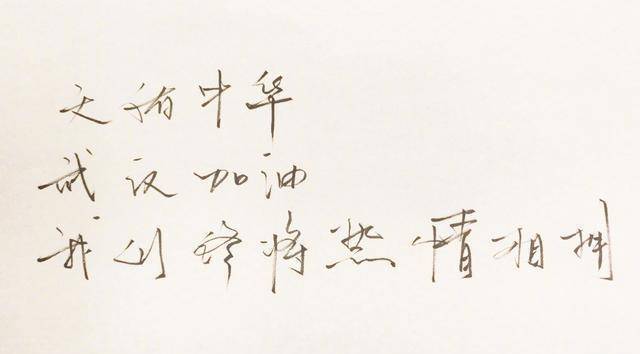 天祐中华
武汉加油
我们终将热情相拥